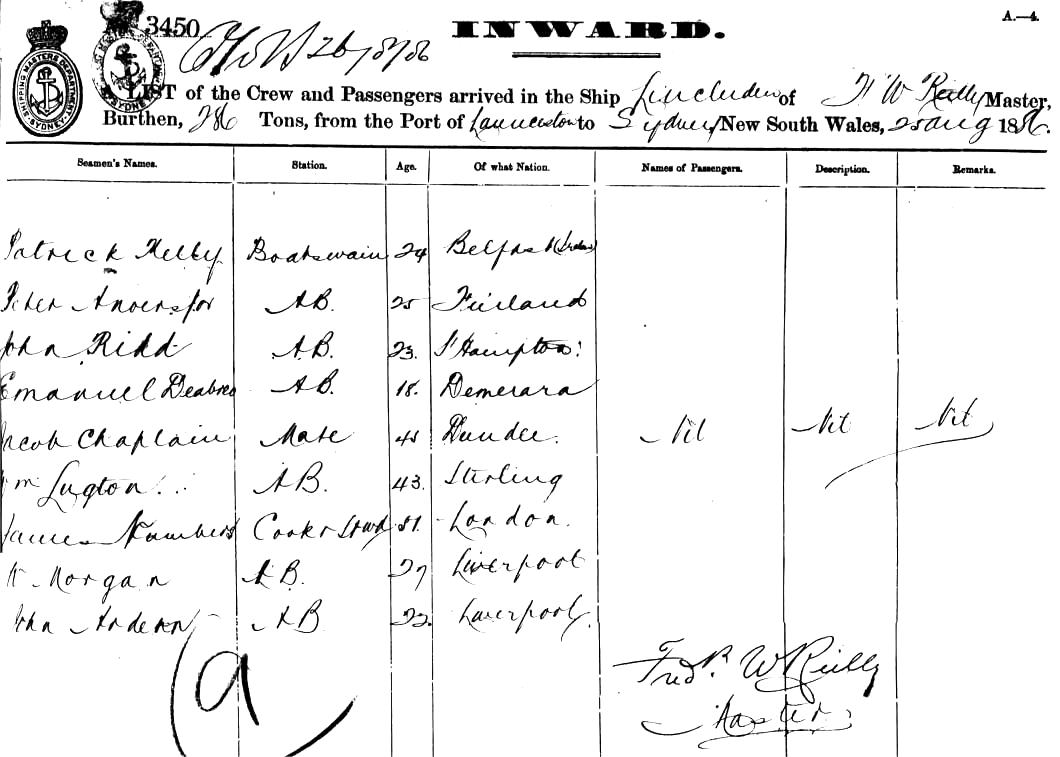 3450
INWARD.
A.—4.
26/8/86
SHIPPING MASTERS DEPARTMENT SYDNEY
LIST of the Crew and Passengers arrived in the Ship of F W Reilly Master,
Burthen, 286 Tons, from the Port of Launceston to Sydney New South Wales, 25 Aug 1886.
Seamen's Names. Station. Age. Of what Nation. Names of Passengers. Description. Remarks.
Patrick Kelly Boatswain 24 Belfast
Peter A.B. 25 Finland
John Ridd A.B. 23. S'Hampton:
Emanuel Deabreo A.B. 18. Demerara
Jacob Chaplain Mate 45 Dundee. Nil Nil Nil
Wm Lugton A.B. 43. Sterling
James Cook & Stwd 51. London.
W Morgan A.B. 27 Liverpool
John A.B 22. Liverpool.
Fredk. W Reilly
Master